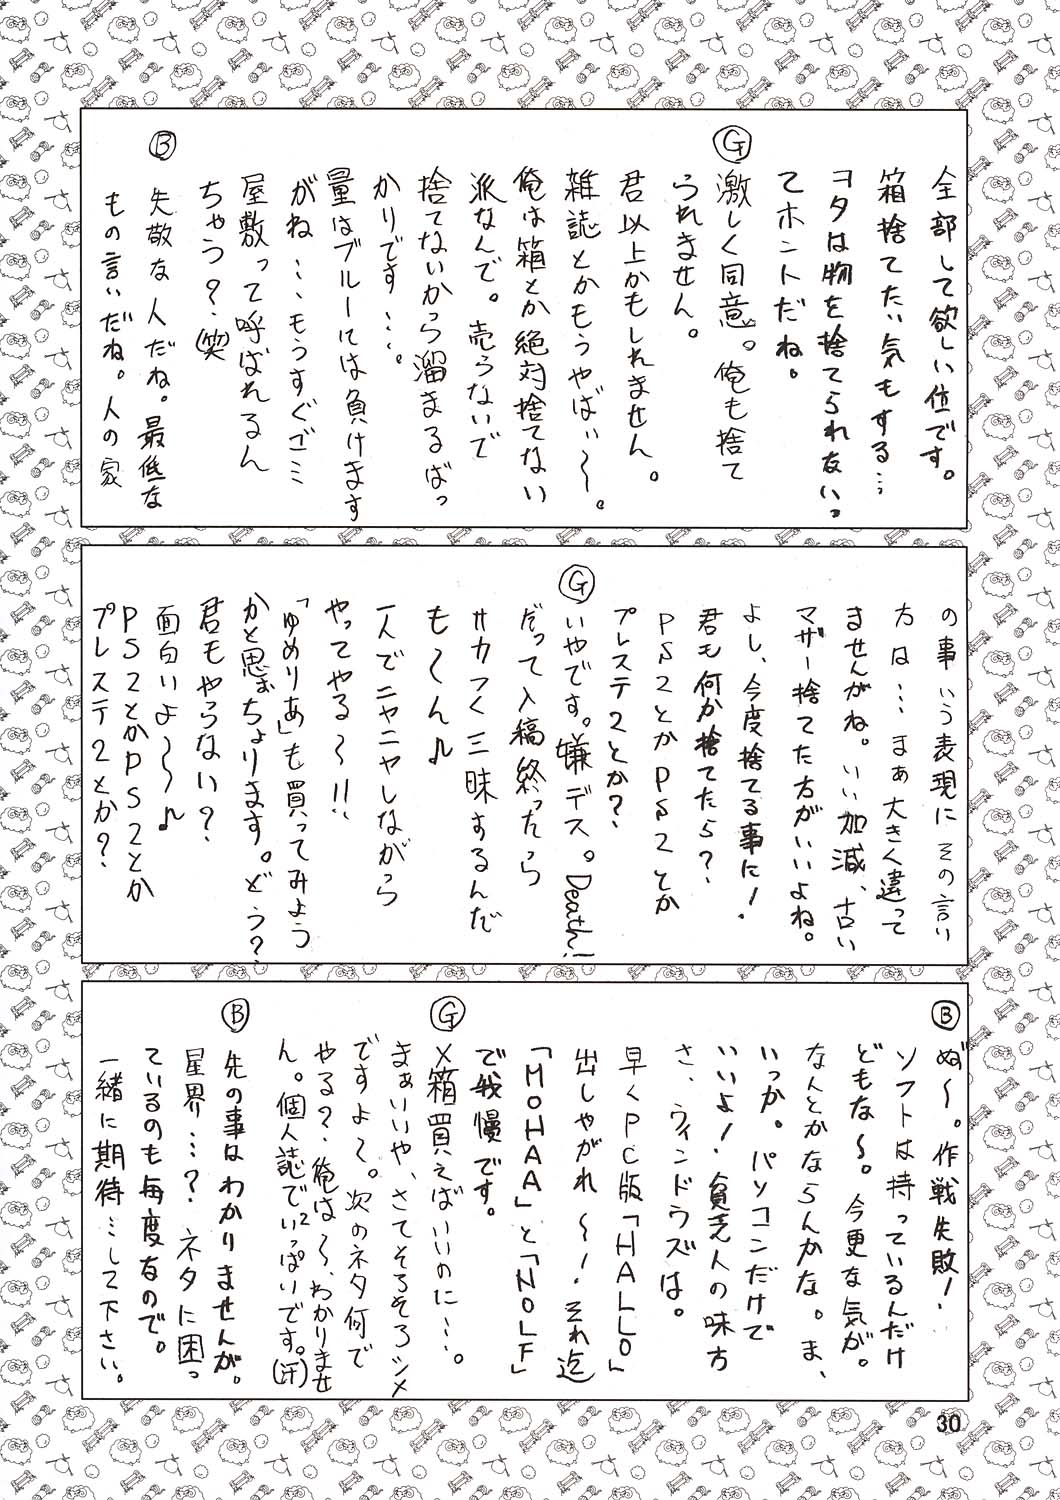 全部して欲しい位です。
箱捨てたい気もする…。
ヲタは物を捨てられないっ
てホントだね。
Ⓖ
激しく同意。俺も捨て
られません。
君以上かもしれません。
雑誌とかもうやばい〜。
俺は箱とか絶対捨てない
派なんで。売らないで
捨てないから溜まるばっ
かりです…。
量はブルーには負けます
がね…もうすぐゴミ
屋敷って呼ばれるん
ちゃう?(笑)
Ⓑ
失敬な人だね。最低な
もの言いだね。人の家
の事いう表現にその言い
方は…まぁ大きく違って
ませんがね。いい加減、古い
マザー捨てた方がいいよね。
よし、今度捨てる事に!
君も何か捨てたら?
PS2とかPS2とか
プレステ2とか?
Ⓖ
いやです。嫌デス。Death!
だって入稿終ったら
サカつく三昧するんだ
も〜ん♪
一人でニヤニヤしながら
やってやる〜!!
「ゆめりあ」も買ってみよう
かと思ぉちょります。どう?
君もやらない?
面白いよ〜♪
PS2とかPS2とか
プレステ2とか?
Ⓑ
ぬ〜。作戦失敗!
ソフトは持っているんだけ
どもな〜。今更な気が。
なんとかならんかな。ま、
いっか。パソコンだけで
いいよ!貧乏人の味方
さ、ウィンドウズは。
早くPC版「HALLO」
出しやがれ〜!それ迄
「MOHAA」と「NOLF」
で我慢です。
Ⓖ
×箱買えばいいのに…。
まぁいいや、さてそろそろシメ
ですよ〜。次のネタ何で
やる?俺は〜、わかりませ
ん。個人誌でいっぱいです。(汗)
Ⓑ
先の事はわかりませんが。
星界…?ネタに困っ
ているのも毎度なので。
一緒に期待…して下さい。
30